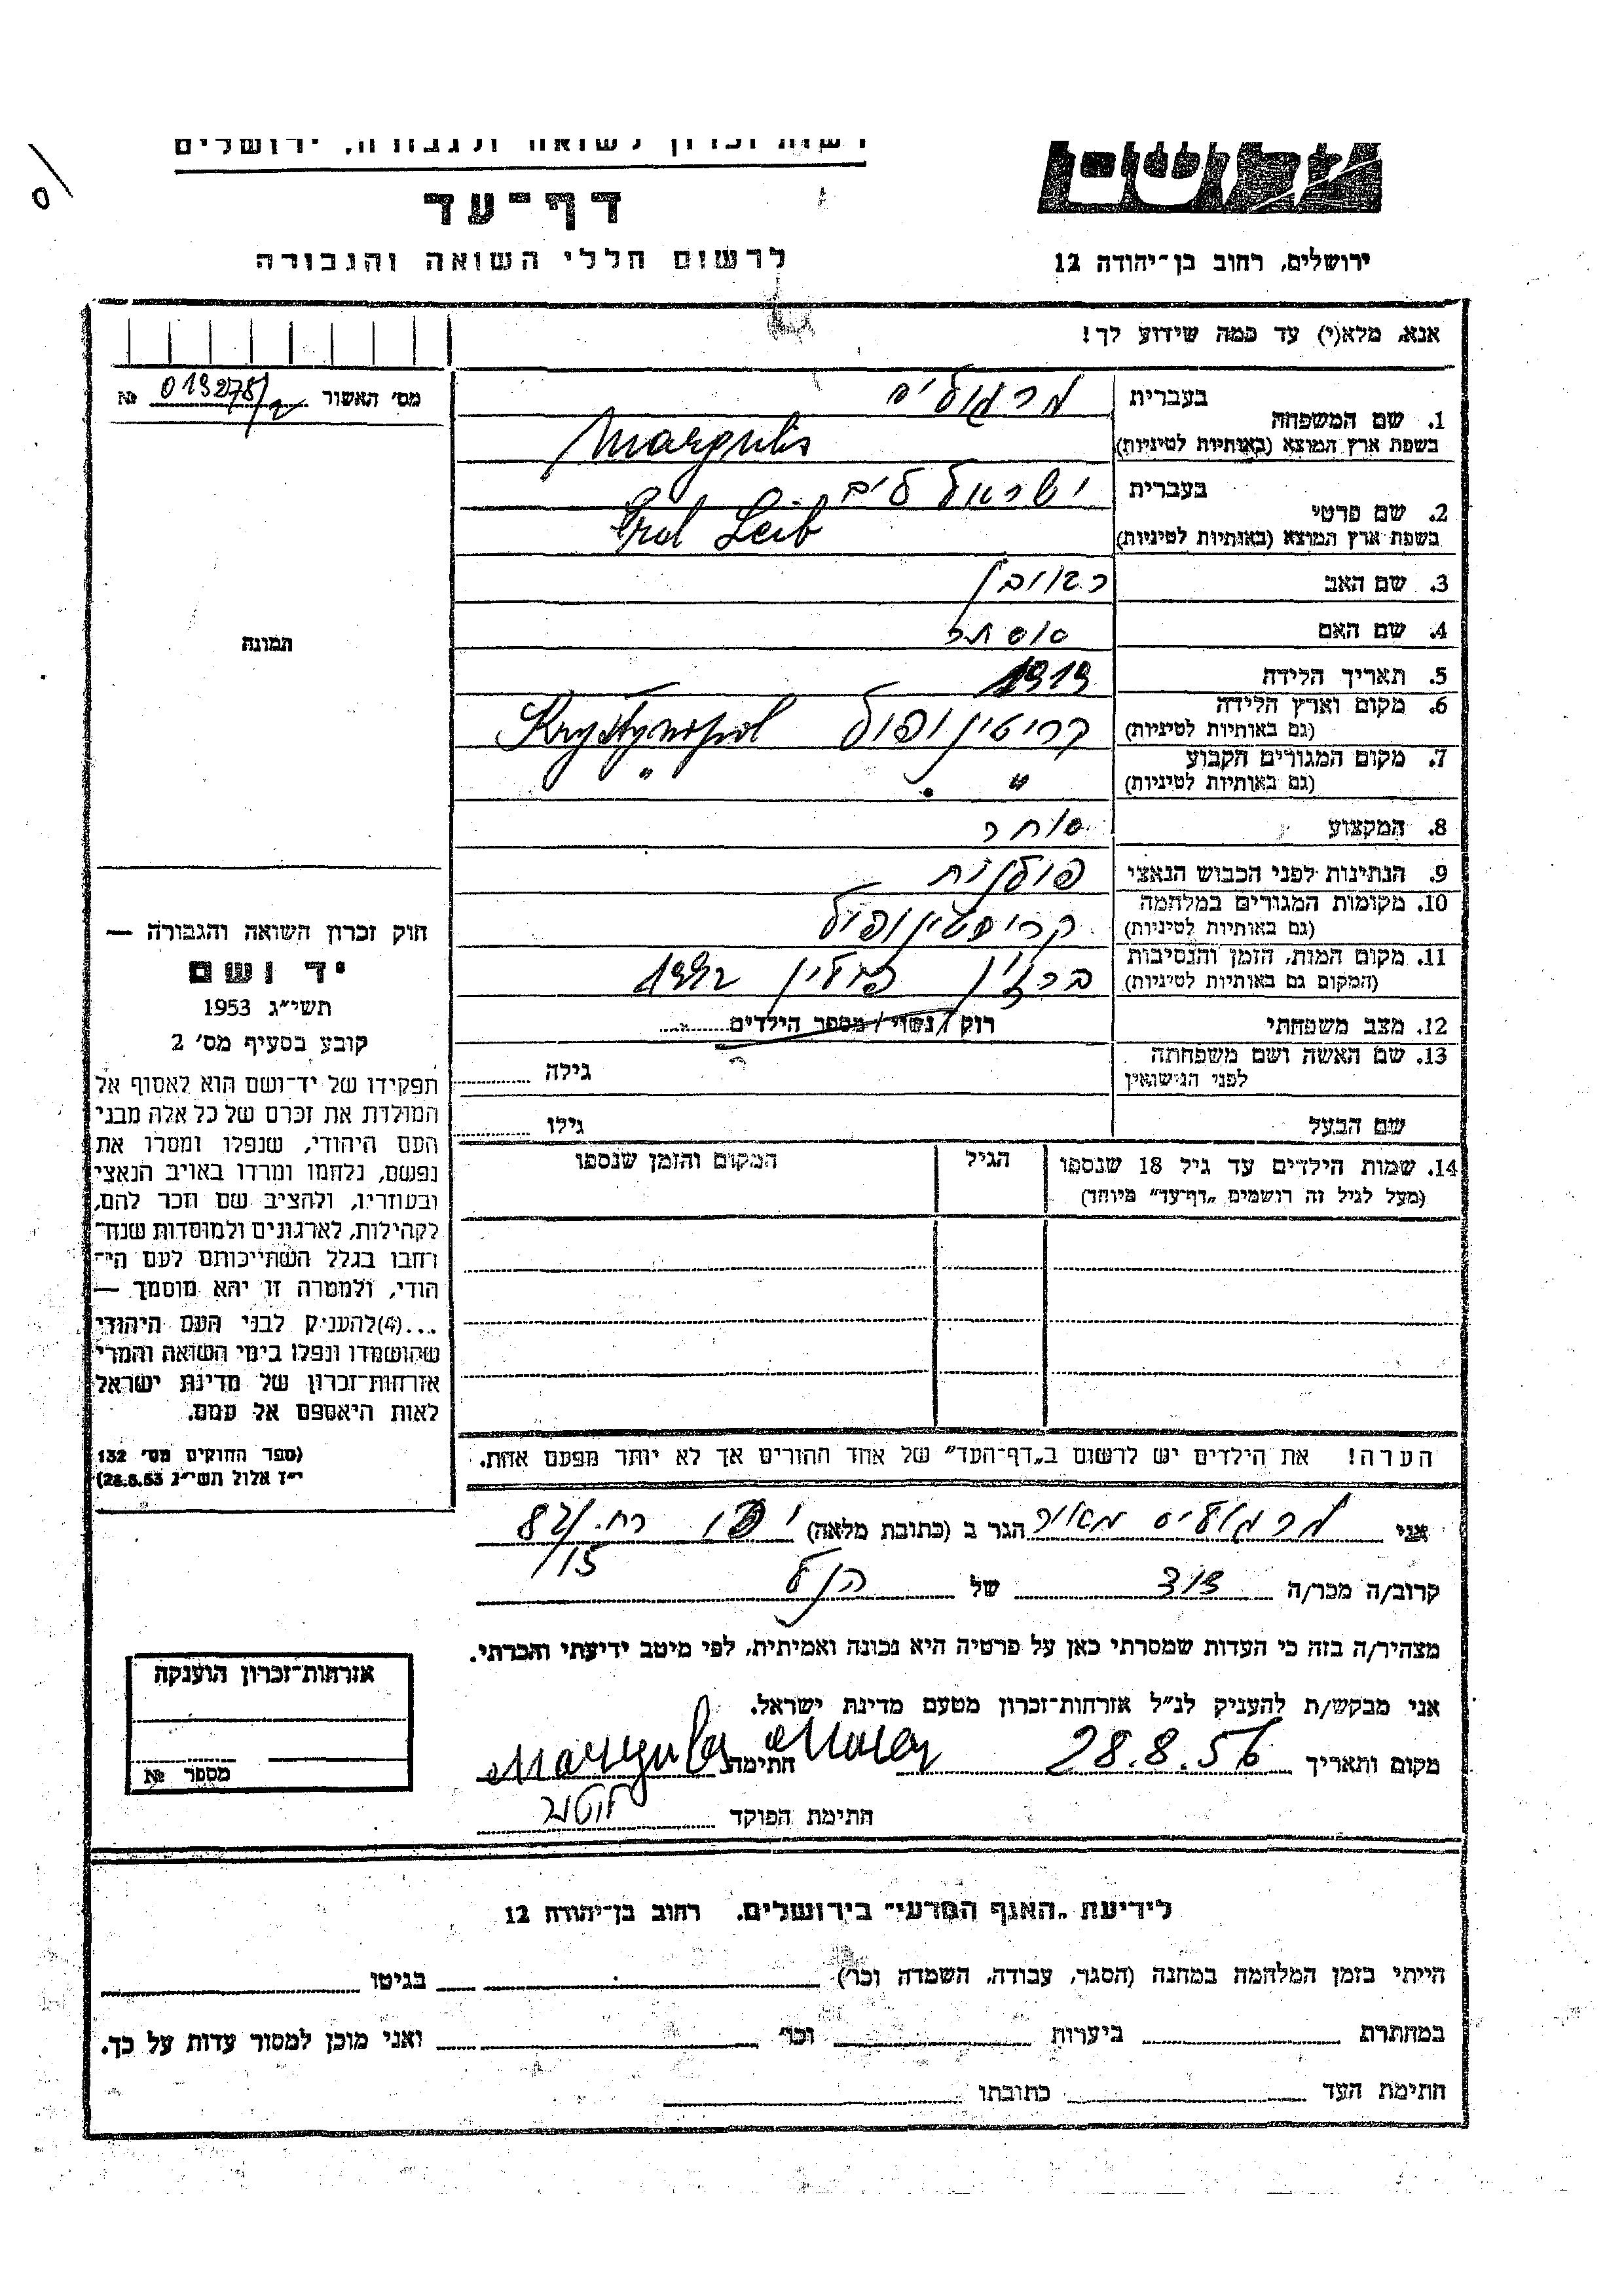 רשות זכרון לשואה ולגבורה, ירושלים
דף־עד
לרשום חללי השואה והגבורה
ירושלים, רחוב בן־יהודה 12
אנא, מלא(י) עד כמה שידוע לך!
מס׳ האשור 013278/2 №
1. שם המשפחה
בעברית מרגוליס
בשפת ארץ המוצא (באותיות לטיניות) Margulis
2. שם פרטי
בעברית ישראל ליב
בשפת ארץ המוצא (באותיות לטיניות) Srol Leib
3. שם האב ראובן
4. שם האם
5. תאריך הלידה 1919
6. מקום וארץ הלידה קריסטינופול Krystynopol
(גם באותיות לטיניות)
7. מקום המגורים הקבוע " "
(גם באותיות לטיניות)
8. המקצוע סוחר
9. הנתינות לפני הכבוש הנאצי פולנית
10. מקומות המגורים במלחמה קריסטינופול
(גם באותיות לטיניות)
11. מקום המות, הזמן והנסיבות פולין 1942
(המקום גם באותיות לטיניות)
12. מצב משפחתי רוק / נשוי / מספר הילדים
13. שם האשה ושם משפחתה גילה
לפני הנישואין
שם הבעל גילו
14. שמות הילדים עד גיל 18 שנספו הגיל המקום והזמן שנספו
(מעל לגיל זה רושמים „דף־עד״ מיוחד)
הערה! את הילדים יש לרשום ב„דף־העד״ של אחד ההורים אך לא יותר מפעם אחת.
תמונה
חוק זכרון השואה והגבורה —
יד ושם
תשי״ג 1953
קובע בסעיף מס׳ 2
תפקידו של יד־ושם הוא לאסוף אל
המולדת את זכרם של כל אלה מבני
העם היהודי, שנפלו ומסרו את
נפשם, נלחמו ומרדו באויב הנאצי
ובעוזריו, ולהציב שם וזכר להם,
לקהילות, לארגונים ולמוסדות שנח־
רחבו בגלל השתייכותם לעם הי־
הודי, ולמטרה זו יהא מוסמך —
...(4)להעניק לבני העם היהודי
שהושמדו ונפלו בימי השואה והמרי
אזרחות־זכרון של מדינת ישראל
לאות היאספם אל עמם.
(ספר החוקים מס׳ 132
י״ז אלול תשי״ג 28.8.53)
אני מרגוליס מאיר הגר ב (כתובת מלאה) יפו רח. 82/
15
קרוב/ה מכר/ה דוד של הנ״ל
מצהיר/ה בזה כי העדות שמסרתי כאן על פרטיה היא נכונה ואמיתית, לפי מיטב ידיעתי והכרתי.
אני מבקש/ת להעניק לנ״ל אזרחות־זכרון מטעם מדינת ישראל.
מקום ותאריך 28.8.56 חתימה Margules Maier
חתימת הפוקד
אזרחות־זכרון הוענקה
מספר №
לידיעת „האגף המדעי״ בירושלים. רחוב בן־יהודה 12
הייתי בזמן המלחמה במחנה (הסגר, עבודה, השמדה וכו׳) בגיטו
במחתרת ביערות וכו׳ ואני מוכן למסור עדות על כך.
חתימת העד כתובתו